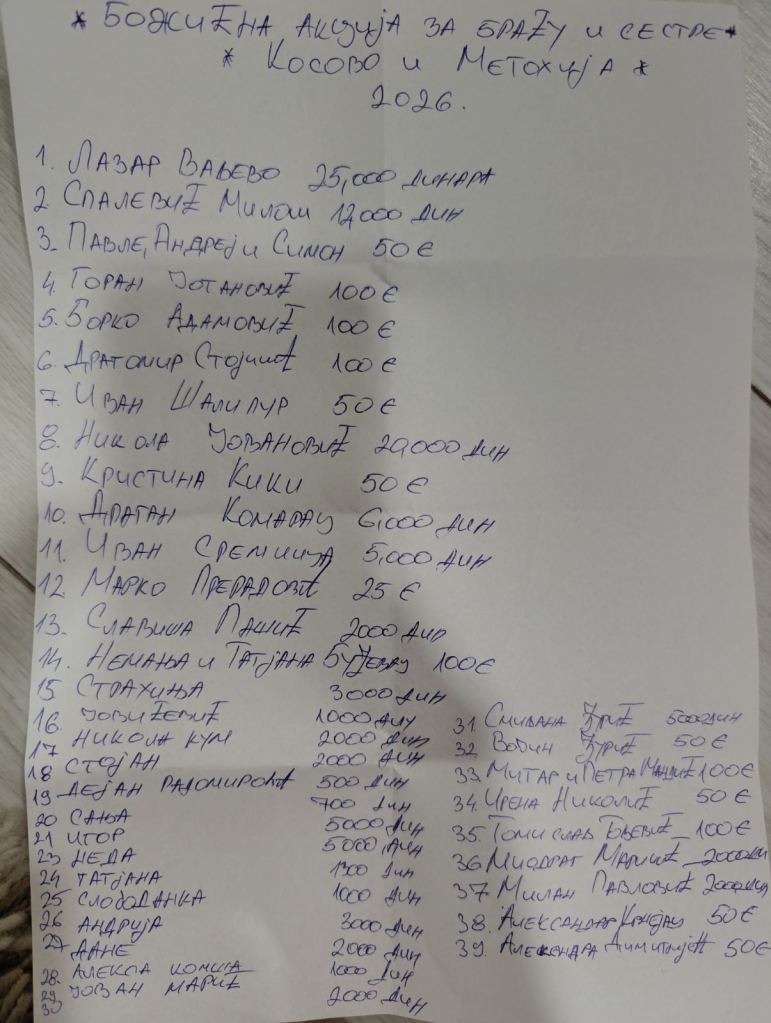 * БОЖИЋНА АКЦИЈА ЗА БРАЋУ И СЕСТРЕ *
* КОСОВО И МЕТОХИЈА *
2026.
1. ЛАЗАР ВАЉЕВО 25,000 ДИНАРА
2. СПАЛЕВИЋ МИЛОШ 12,000 ДИН
3. ПАВЛЕ, АНДРЕЈ И СИМОН 50 €
4. ГОРАН ЈОТАНОВИЋ 100 €
5. БОРКО АДАМОВИЋ 100 €
6. ДРАГОМИР СТОЈШИЋ 100 €
7. ИВАН ШАЛИПУР 50 €
8. НИКОЛА ЈОВАНОВИЋ 20,000 ДИН
9. КРИСТИНА КИКИ 50 €
10. ДРАГАН КОМАРАЦ 6,000 ДИН
11. ИВАН СРЕМЧИЦА 5,000 ДИН
12. МАРКО ПРЕРАДОВИЋ 25 €
13. СЛАВИША ПАШИЋ 2000 ДИН
14. НЕМАЊА И ТАТЈАНА 100 €
15 СТРАХИЊА 3000 ДИН
16. ЈОВИЋЕВИЋ 1000 ДИН
17 НИКОЛА КУМ 2000 ДИН
18 СТОЈАН 2000 ДИН
19 ДЕЈАН РАДОМИРОВИЋ 500 ДИН
700 ДИН
20 САЊА 5000 ДИН
21 ИГОР 5000 ДИН
23 НЕДА 1300 ДИН
24 ТАТЈАНА 1000 ДИН
25 СЛОБОДАНКА
26 АНДРИЈА 3000 ДИН
27 ДАНЕ 2000 ДИН
28. АЛЕКСА КОМША 1000 ДИН
29 ЈОВАН МАРИЋ 2000 ДИН
30
31. СМИЉАНА ЂУРИЋ 5000 ДИН
32. ВОЈИН ЂУРИЋ 50 €
33. МИТАР И ПЕТРА 100 €
34. ИРЕНА НИКОЛИЋ 50 €
35. ТОМИСЛАВ 100 €
36 МИОДРАГ МАРИЋ 2000 ДИН
37 МИЛАН ПАВЛОВИЋ 2000 ДИН
38. АЛЕКСАНДАР 50 €
39. АЛЕКСАНДРА ДИМИТРИЈЕ 50 €